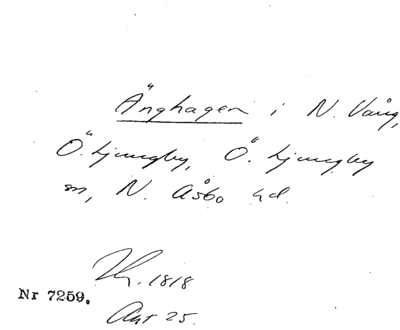 Änghagen i N. Vång,
Ö. Ljungby, Ö. Ljungby
sn, N. Åsbo hd.
1818
Nr 7259.
Akt 25.